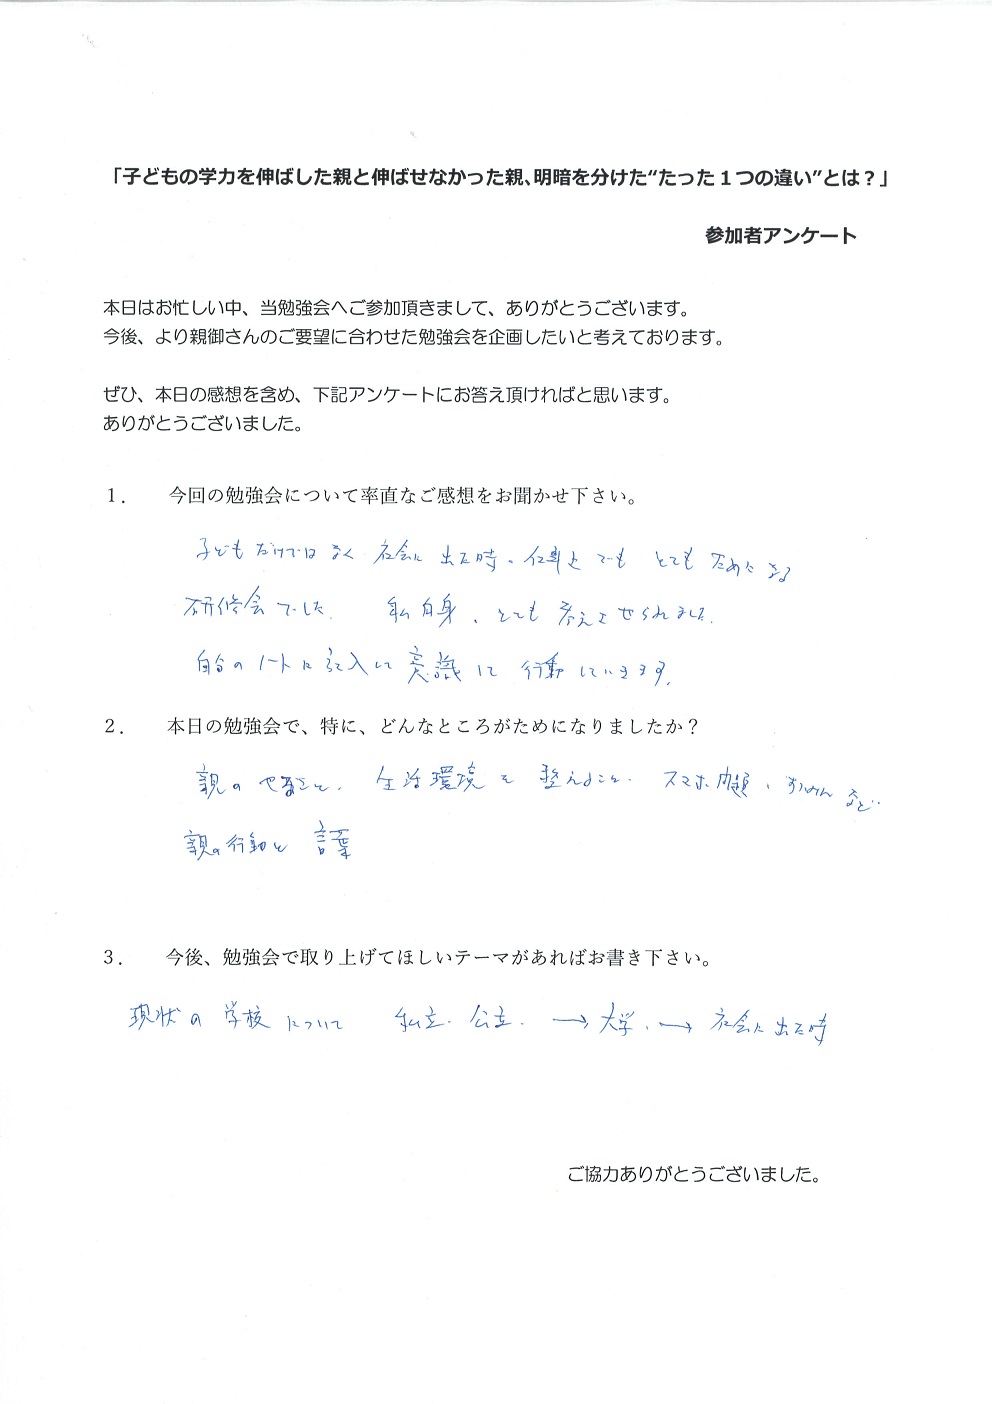 「子どもの学力を伸ばした親と伸ばせなかった親、明暗を分けた“たった１つの違い”とは？」
参加者アンケート
本日はお忙しい中、当勉強会へご参加頂きまして、ありがとうございます。
今後、より親御さんのご要望に合わせた勉強会を企画したいと考えております。
ぜひ、本日の感想を含め、下記アンケートにお答え頂ければと思います。
ありがとうございました。
１．　今回の勉強会について率直なご感想をお聞かせ下さい。
子どもだけではなく 社会に出た時、仕事上でも とてもためになる
研修会でした。 私自身、とても考えさせられました。
自分のノートに記入して意識して行動していきます。
２．　本日の勉強会で、特に、どんなところがためになりましたか？
親のやること、生活環境を整えること、スマホ問題、など..
親の行動と言葉
３．　今後、勉強会で取り上げてほしいテーマがあればお書き下さい。
現状の学校について 私立、公立、→大学、→社会に出た時
ご協力ありがとうございました。